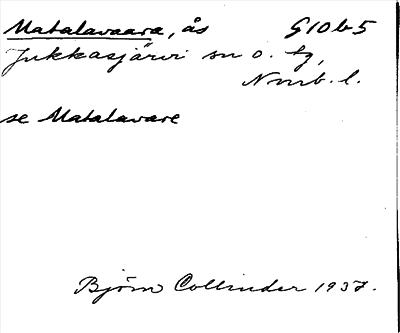 Matalavaara, ås G10b5
Jukkasjärvi sn o. tg,
Nnrb. l.
se Matalavare
Björn Collinder 1937.